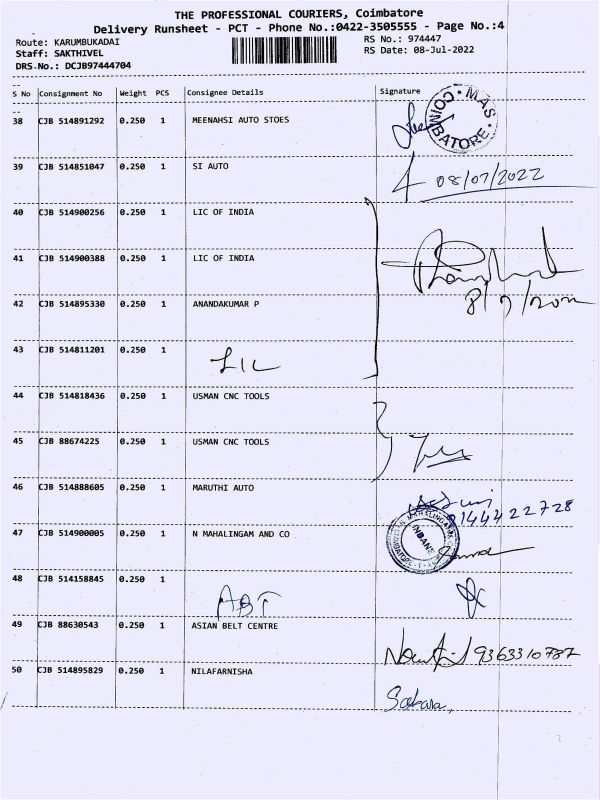 THE PROFESSIONAL COURIERS, Coimbatore
Delivery Runsheet - PCT - Phone No.:0422-3505555 - Page No.:4
Route: KARUMBUKADAI RS No.: 974447
Staff: SAKTHIVEL RS Date: 08-Jul-2022
DRS-No.: DCJB97444704
S No Consignment No Weight PCS Consignee Details Signature
38 CJB 514891292 0.250 1 MEENAHSI AUTO STOES
MAS COIMBATORE
39 CJB 514851047 0.250 1 SI AUTO
08/07/2022
40 CJB 514900256 0.250 1 LIC OF INDIA
41 CJB 514900388 0.250 1 LIC OF INDIA
8/7/2022
42 CJB 514895330 0.250 1 ANANDAKUMAR P
43 CJB 514811201 0.250 1
LIC
44 CJB 514818436 0.250 1 USMAN CNC TOOLS
45 CJB 88674225 0.250 1 USMAN CNC TOOLS
46 CJB 514888605 0.250 1 MARUTHI AUTO
9144422728
47 CJB 514900005 0.250 1 N MAHALINGAM AND CO
48 CJB 514158845 0.250 1
ABT
49 CJB 88630543 0.250 1 ASIAN BELT CENTRE
9363310787
50 CJB 514895829 0.250 1 NILAFARNISHA
Sabara,